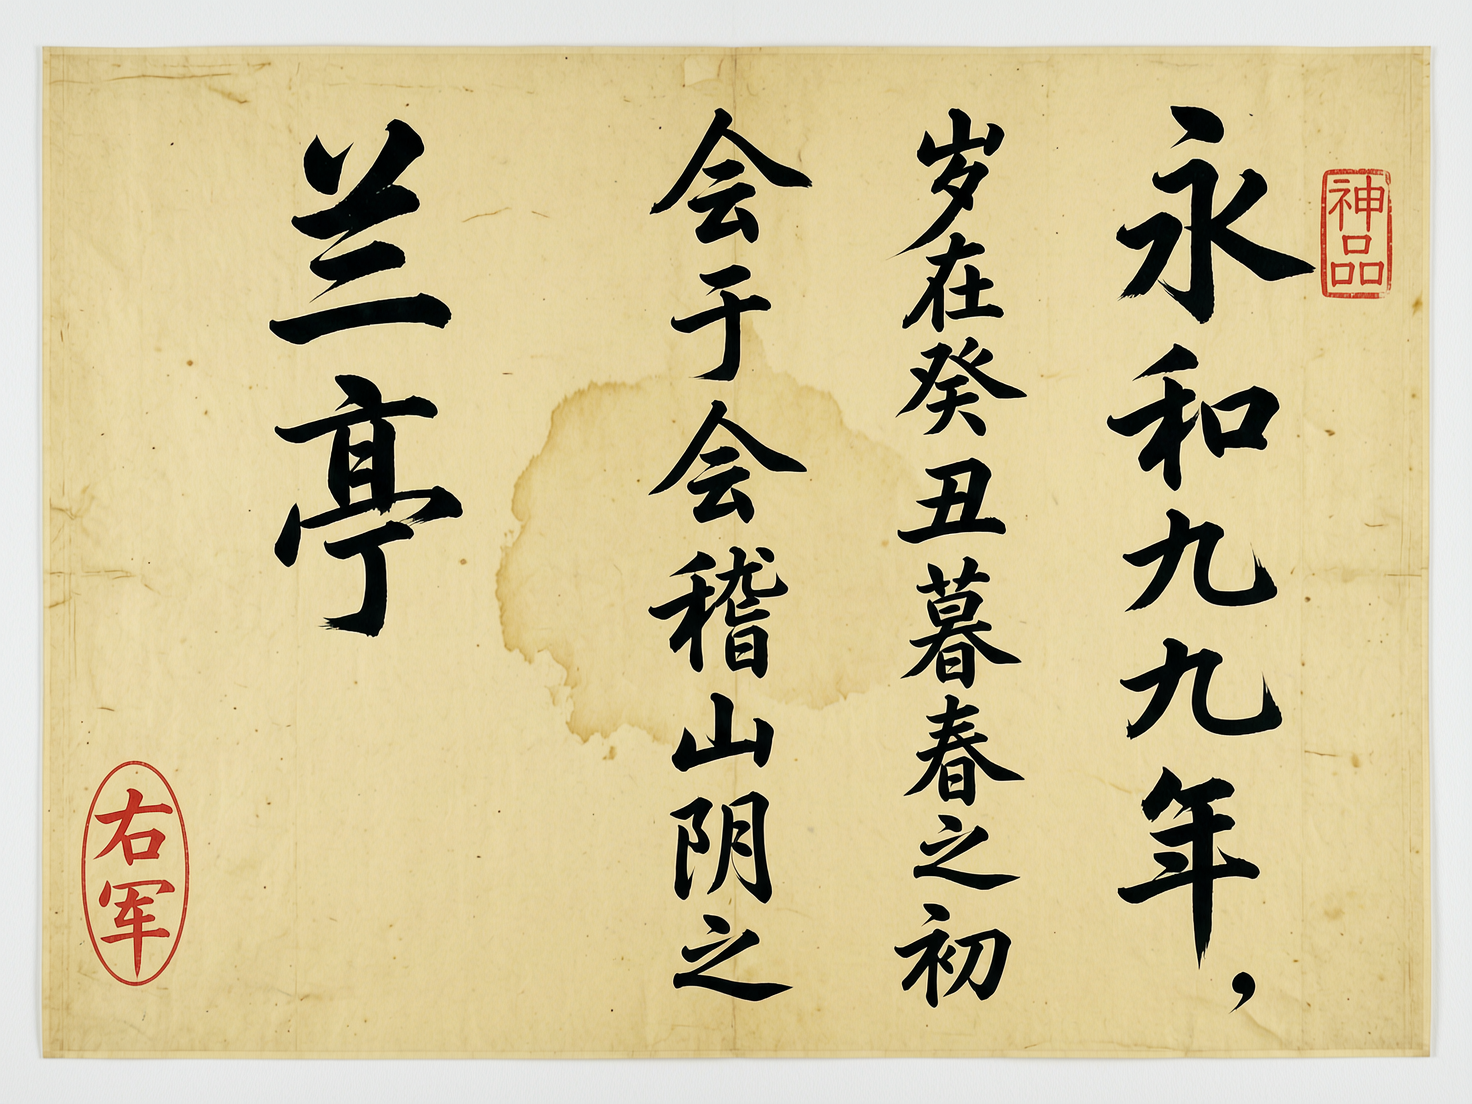 神品
永和九九年，
岁在癸丑暮春之初
会于会稽山阴之
兰亭
右军